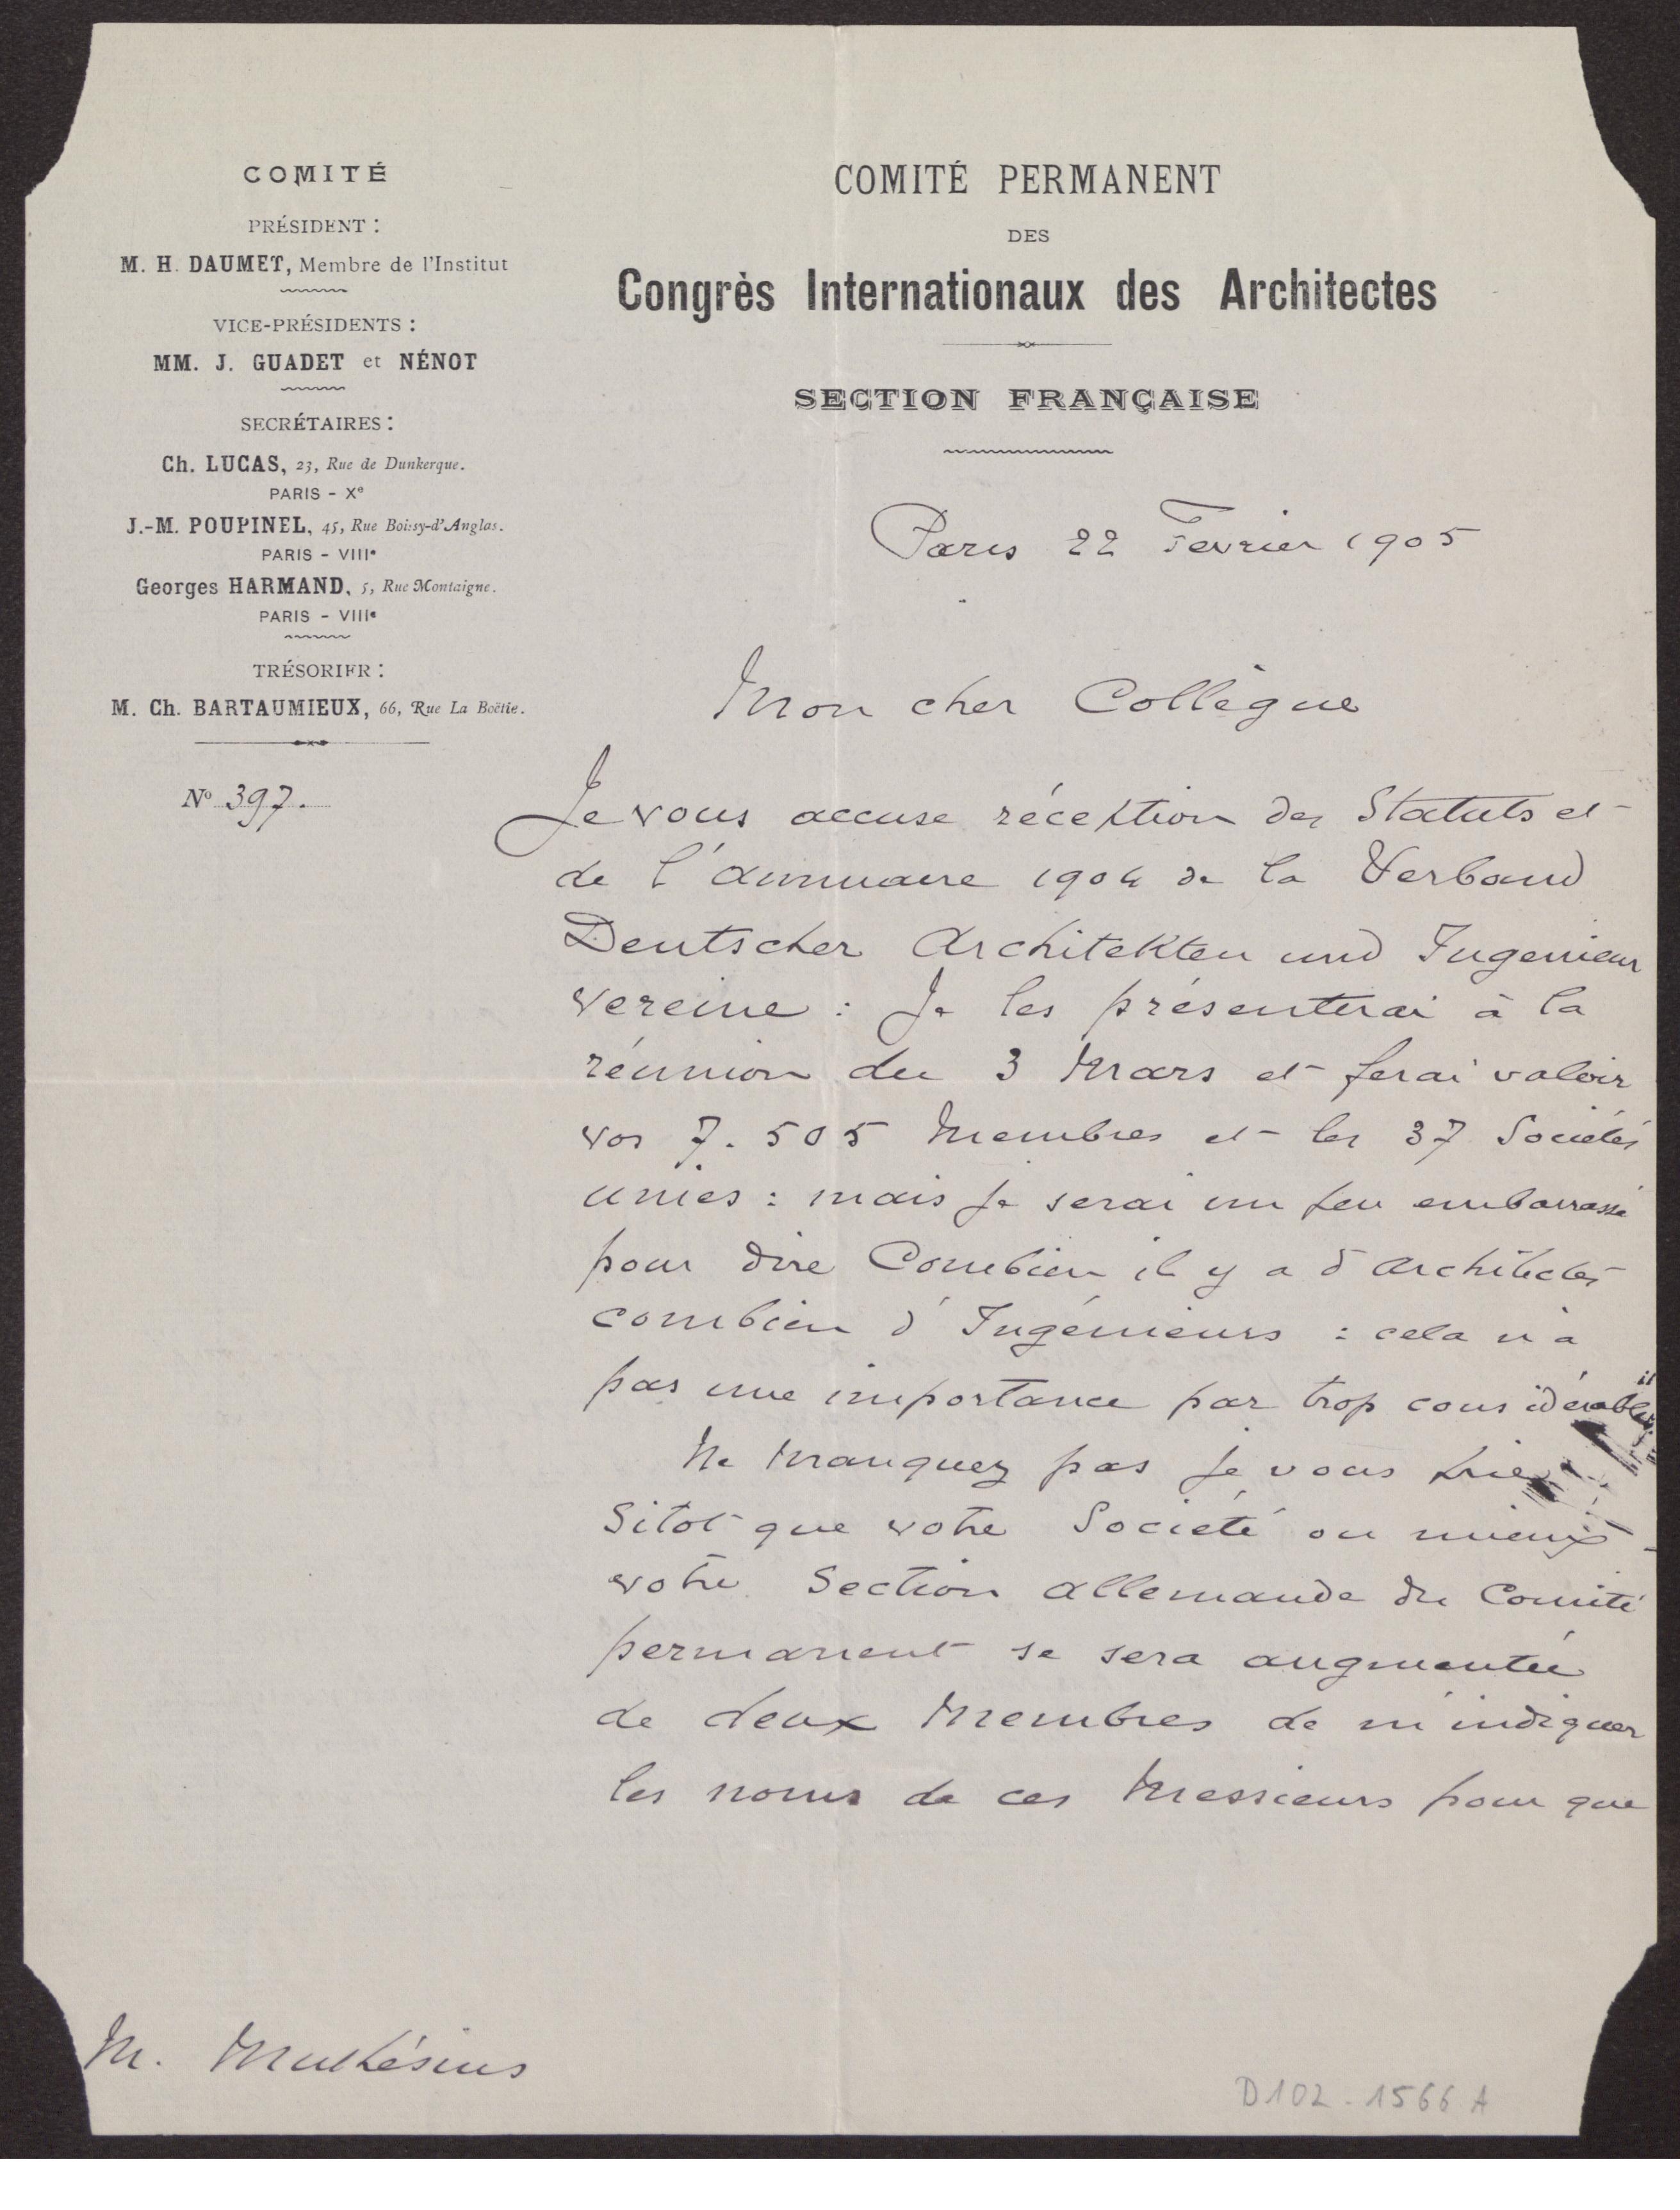 COMITÉ
PRÉSIDENT :
M. H. DAUMET, Membre de l'Institut
VICE-PRÉSIDENTS :
MM. J. GUADET et NÉNOT
SECRÉTAIRES :
Ch. LUCAS, 23, Rue de Dunkerque.
PARIS - Xe
J.-M. POUPINEL, 45, Rue Boissy-d'Anglas.
PARIS - VIIIe
Georges HARMAND, 5, Rue Montaigne.
PARIS - VIIIe
TRÉSORIER :
M. Ch. BARTAUMIEUX, 66, Rue La Boëtie.
No 397.
COMITÉ PERMANENT
DES
Congrès Internationaux des Architectes
SECTION FRANÇAISE
Paris 22 Fevrier 1905
Mon cher Collègue
Je vous accuse réception des Statuts et
de l'annuaire 1904 de la Verband
Deutscher Architekten und Ingenieur
vereine : Je les présenterai à la
réunion du 3 Mars et ferai valoir
vos 7.505 Membres et les 37 Sociétés
unies : mais je serai un peu embarrassé
pour dire Combien il y a d'architectes
combien d'Ingénieurs : cela n'a
pas une importance par trop considérable
Ne manquez pas je vous prie
Sitot que votre Société ou mieux
votre Section allemande du Comité
permanent se sera augmentée
de deux Membres de m'indiquer
les noms de ces Messieurs pour que
M. Muthésius
D102-1566 A